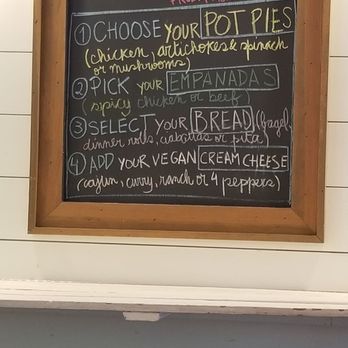 ①CHOOSE YOUR POT PIES
(chicken, artichokes & spinach
or mushrooms)
②PICK YOUR EMPANADAS
(spicy chicken or beef)
③SELECT YOUR BREAD (bagel,
dinner rolls, ciabattas or pita)
④ADD YOUR VEGAN CREAM CHEESE
(cajun, curry, ranch or 4 peppers)